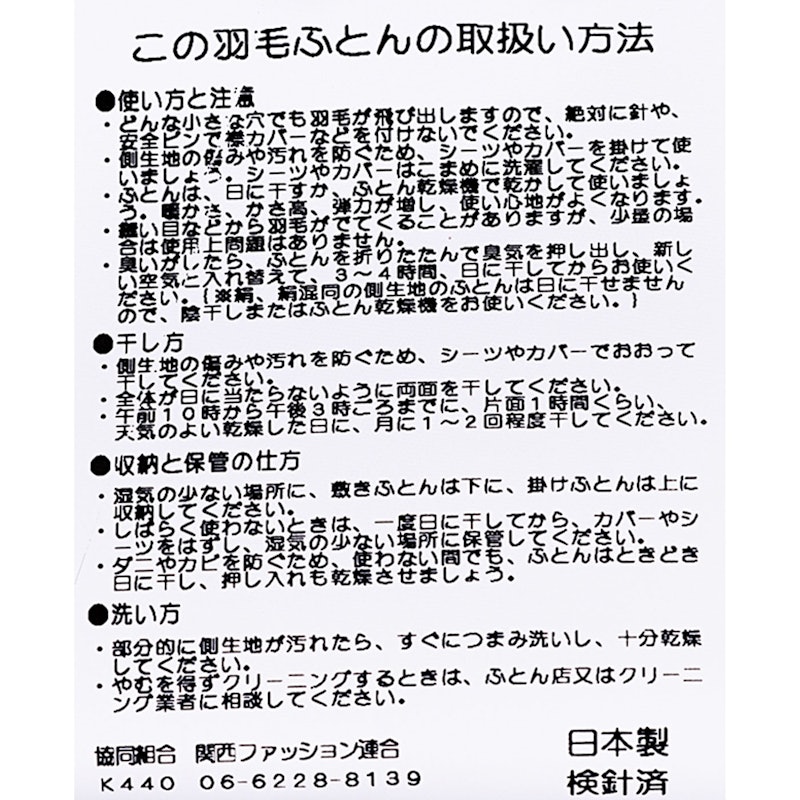 この羽毛ふとんの取扱い方法
●使い方と注意
・どんな小さな穴でも羽毛が飛び出しますので、絶対に針や、
安全ピンで襟カバーなどを付けないでください。
・側生地の傷みや汚れを防ぐため、シーツやカバーを掛けて使
いましょう。シーツやカバーはこまめに洗濯してください。
・ふとんは、日に干すか、ふとん乾燥機で乾かして使いましょ
う。暖かさ、かさ高、弾力が増し、使い心地がよくなります。
・縫い目などから羽毛がでてくることがありますが、少量の場
合は使用上問題はありません。
・臭いがしたら、ふとんを折りたたんで臭気を押し出し、新し
い空気と入れ替えて、3〜4時間、日に干してからお使いく
ださい。{※絹、絹混同の側生地のふとんは日に干せません
ので、陰干しまたはふとん乾燥機をお使いください。}
●干し方
・側生地の傷みや汚れを防ぐため、シーツやカバーでおおって
干してください。
・全体が日に当たらないように両面を干してください。
・午前10時から午後3時ごろまでに、片面1時間くらい、
天気のよい乾燥した日に、月に1〜2回程度干してください。
●収納と保管の仕方
・湿気の少ない場所に、敷きふとんは下に、掛けふとんは上に
収納してください。
・しばらく使わないときは、一度日に干してから、カバーやシ
ーツをはずし、湿気の少ない場所に保管してください。
・ダニやカビを防ぐため、使わない間でも、ふとんはときどき
日に干し、押し入れも乾燥させましょう。
●洗い方
・部分的に側生地が汚れたら、すぐにつまみ洗いし、十分乾燥
してください。
・やむを得ずクリーニングするときは、ふとん店又はクリーニ
ング業者に相談してください。
協同組合 関西ファッション連合
K440 06-6228-8139
日本製
検針済